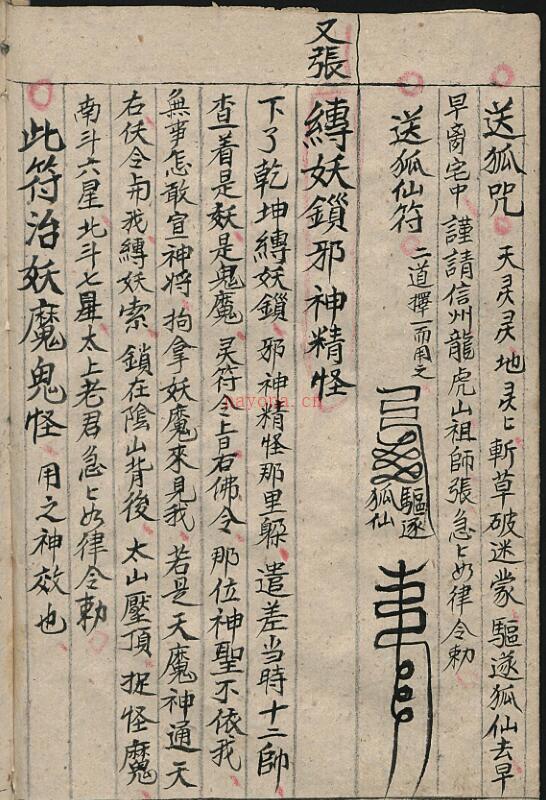 送狐咒 天灵灵地灵〻斬草破迷蒙驅遂狐仙去早
早离宅中謹請信州龍虎山祖師張急〻如律令勅
送狐仙符 二道擇一而用之
驅逐狐仙
又張
縛妖鎖邪神精怪
下了乾坤縛妖鎖邪神精怪那里躱遣差当時十二帥
查一着是妖是鬼魔灵符令旨右佛令那位神聖不依我
無事怎敢宣神將拘拿妖魔來見我若是天魔神通天
右伏令与我縛妖索鎖在陰山背後太山壓頂捉怪魔
南斗六星北斗七星太上老君急〻如律令勅
此符治妖魔鬼怪 用之神效也
nayona.cn